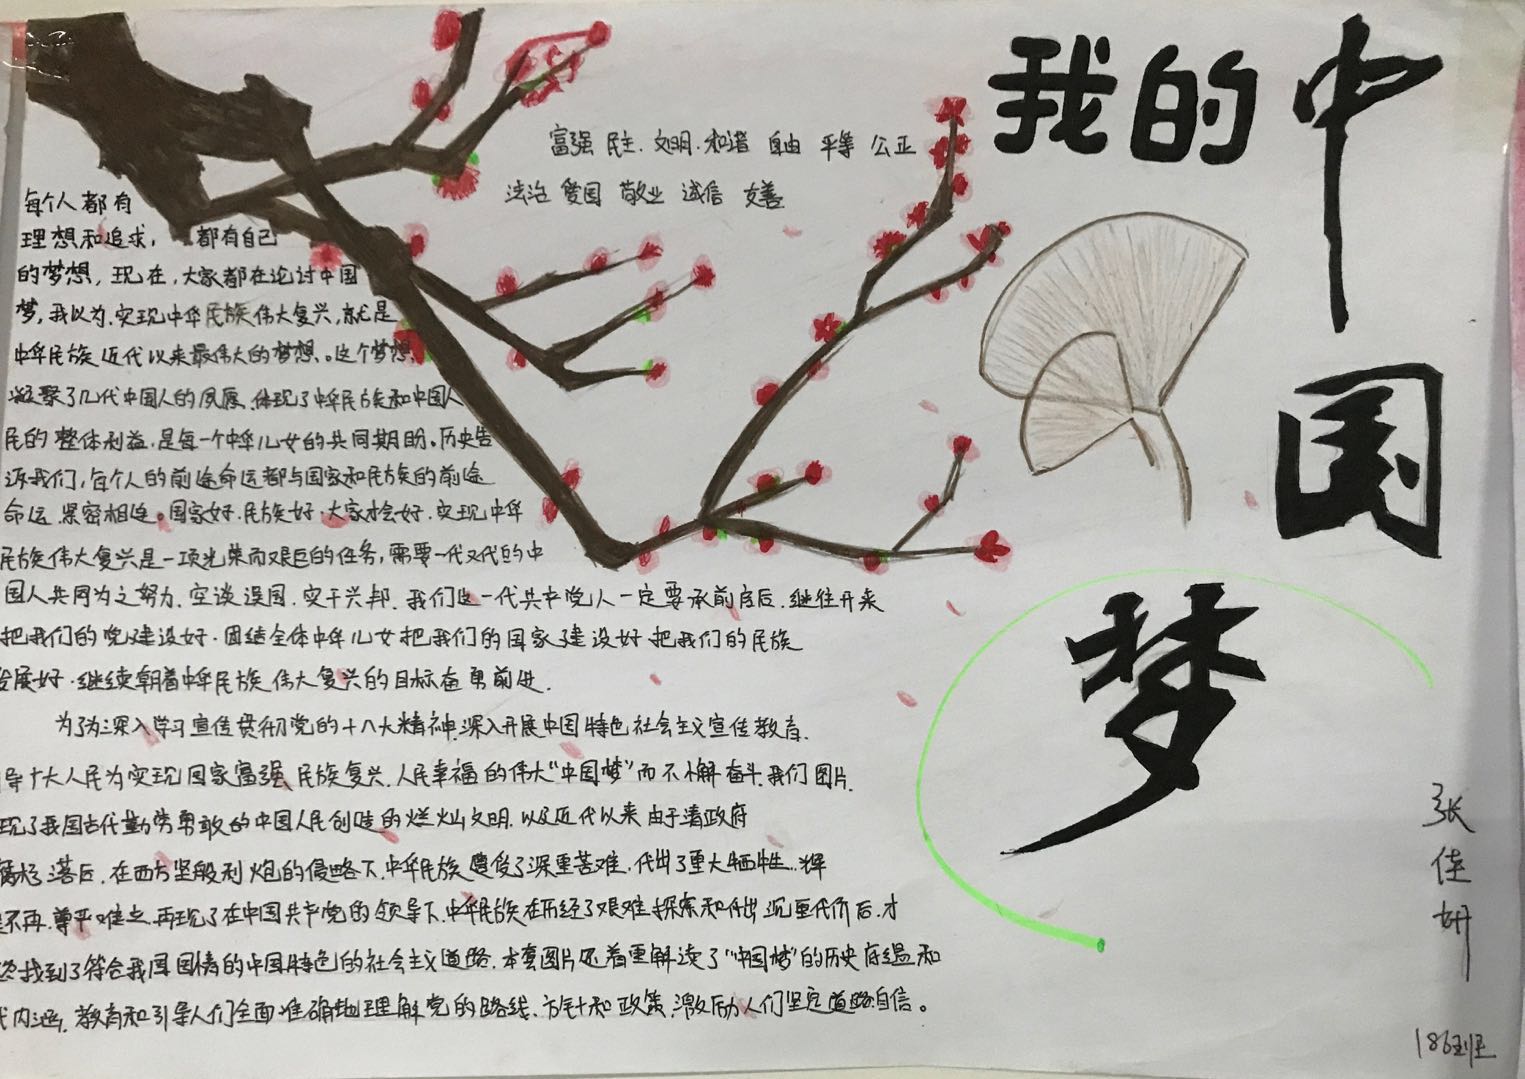 我的中国梦
富强 民主 文明 和谐 自由 平等 公正
法治 爱国 敬业 诚信 友善
每个人都有
理想和追求, 都有自己
的梦想, 现在, 大家都在论讨中国
梦, 我以为, 实现中华民族伟大复兴, 就是
中华民族近代以来最伟大的梦想。这个梦想,
凝聚了几代中国人的夙愿, 体现了中华民族和中国人
民的整体利益, 是每一个中华儿女的共同期盼。历史告
诉我们, 每个人的前途命运都与国家和民族的前途
命运紧密相连。国家好, 民族好, 大家才会好. 实现中华
民族伟大复兴是一项光荣而艰巨的任务, 需要一代又一代的中
国人共同为之努力. 空谈误国, 实干兴邦. 我们这一代共产党人一定要承前启后, 继往开来
把我们的党建设好. 团结全体中华儿女把我们的国家建设好 把我们的民族
发展好. 继续朝着中华民族伟大复兴的目标奋勇前进.
为了深入学习宣传贯彻党的十八大精神, 深入开展中国特色社会主义宣传教育,
导广大人民为实现国家富强, 民族复兴, 人民幸福的伟大“中国梦”而不懈奋斗. 我们图片,
现了我国古代勤劳勇敢的中国人民创造的烂灿文明, 以及近代以来由于清政府
落后, 在西方坚船利炮的侵略下, 中华民族遭受了深重苦难, 付出了重大牺牲. 辉
不再, 尊严难立, 再现了在中国共产党的领导下, 中华民族在历经了艰难探索和付出沉重代价后, 才
找到了符合我国国情的中国特色的社会主义道路, 本套图片还着重解读了“中国梦”的历史底蕴和
代内涵, 教育和引导人们全面准确地理解党的路线, 方针和政策, 激励人们坚定道路自信。
张佳妍
186班